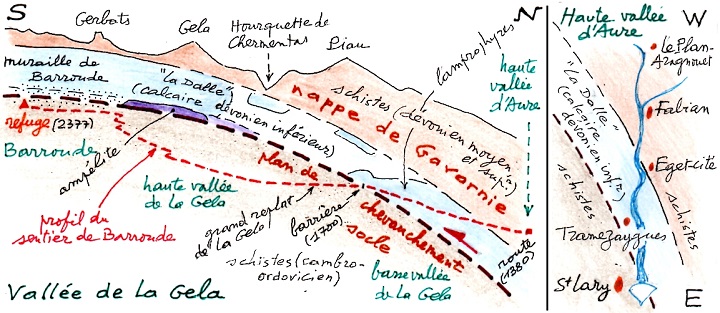 S
N
Gerbats
Gela
Hourquette de
Chermentas
Piau
lamprophyres
haute
vallée
d'Aure
muraille de
Barroude
"La Dalle"
(calcaire dévonien inférieur)
schistes (dévonien moyen
et sup.)
nappe de Gavarnie
refuge (2377)
Barroude
ampélite
haute vallée
de la Gela
plan de
chevauchement
profil du
sentier de Barroude
grand replat
de la Gela
barrière
(1700)
socle
schistes (cambro-
ordovicien)
basse vallée
de la Gela
route
(1380)
Vallée de La Gela
Haute vallée
d'Aure
W
Le Plan-
Aragnouet
"La Dalle"
(calcaire
dévonien inf.r)
Fabian
Eget-cité
schistes
schistes
Tramezaygues
St Lary
E